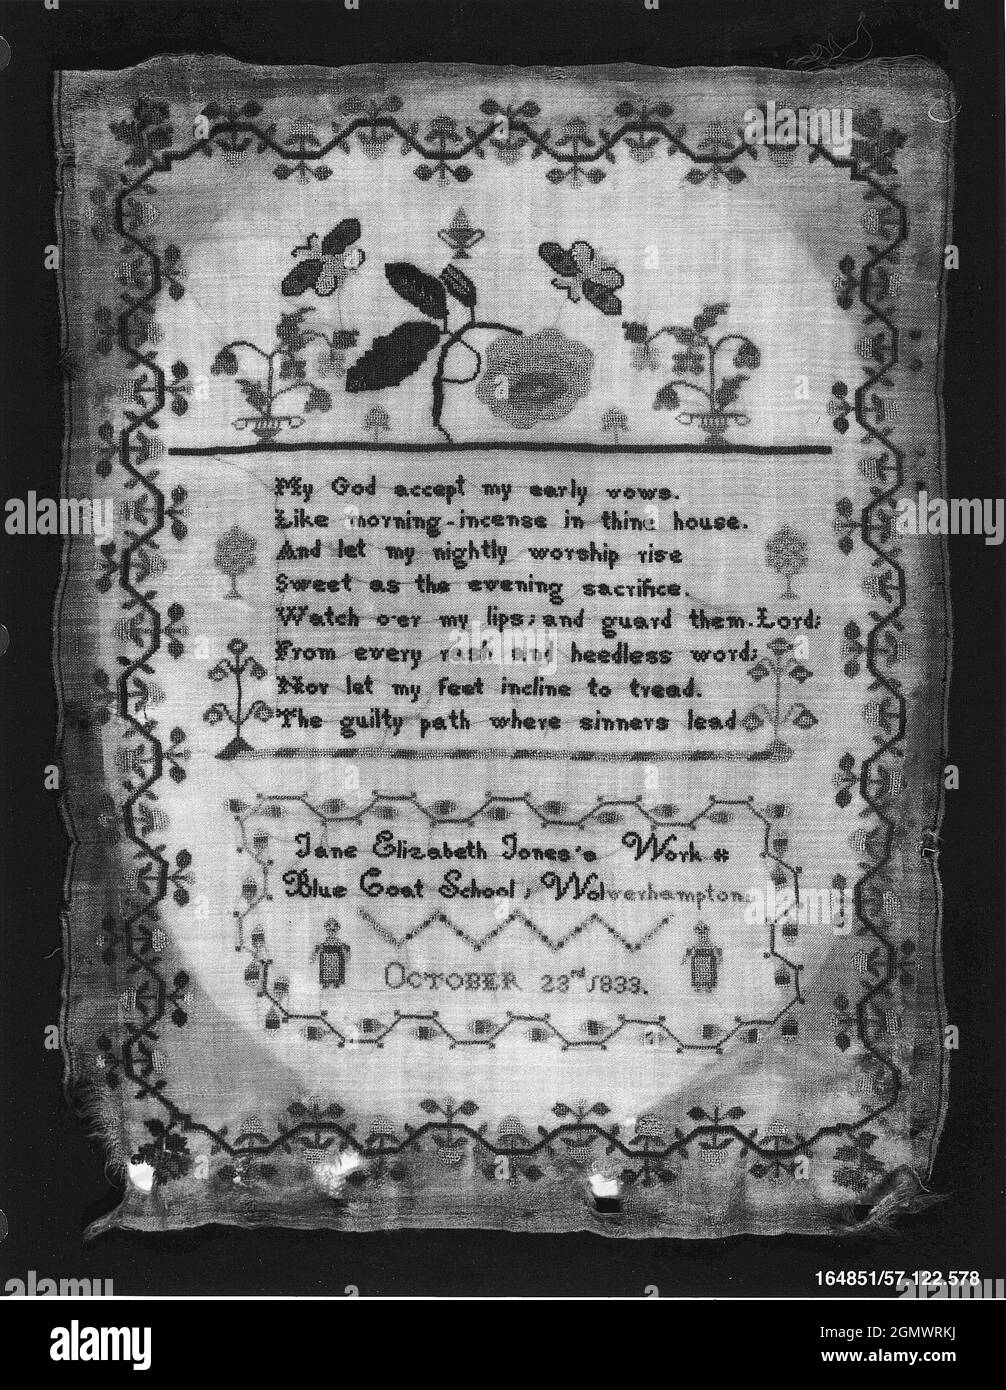 My God accept my early vows.
Like morning-incense in thine house.
And let my nightly worship rise
Sweet as the evening sacrifice.
Watch o'er my lips; and guard them. Lord;
From every rash and heedless word;
Nor let my feet incline to tread.
The guilty path where sinners lead
Jane Elizabeth Jones's Work
Blue Coat School, Wolverhampton.
OCTOBER 23rd 1833.
164851/57.122.578
alamy
Image ID: 2GMWRKJ
www.alamy.com